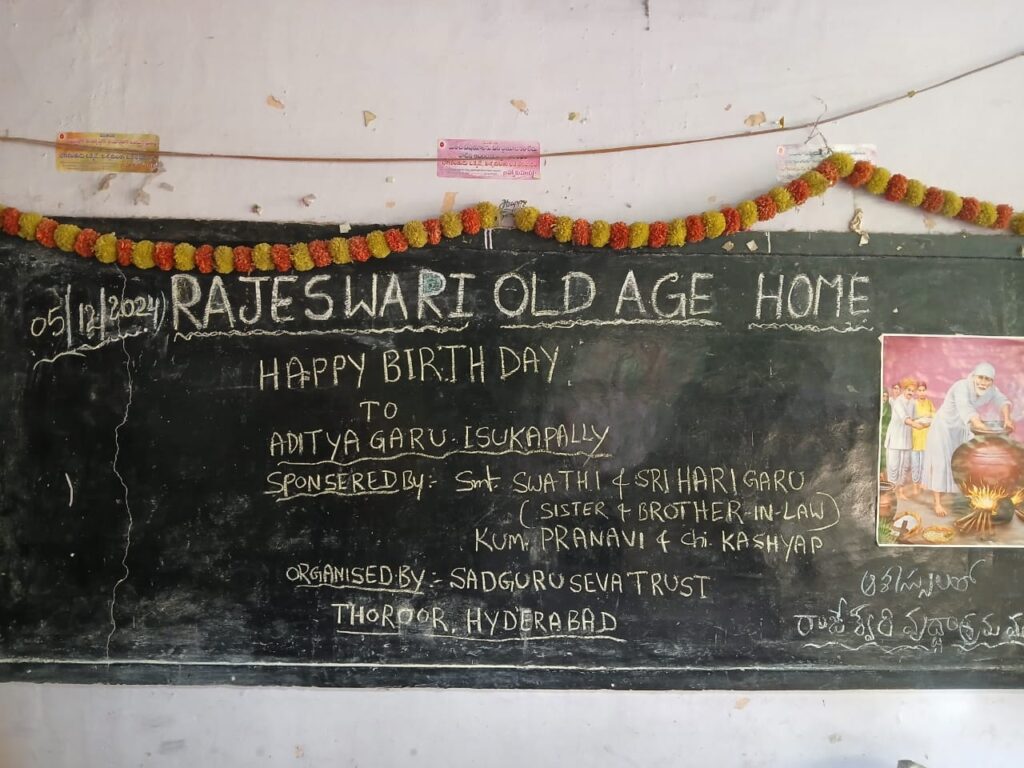 05/12/2024) RAJESWARI OLD AGE HOME
HAPPY BIRTH DAY.
TO
ADITYA GARU. ISUKAPALLY
SPONSERED By:- Smt. SWATHI & SRI HARI GARU
(SISTER & BROTHER-IN-LAW)
KUM. PRANAVI & Chi. KASHYAP
ORGANISED BY:- SADGURU SEVA TRUST
THOROOR, HYDERABAD
ఆశీస్సులతో
రాజేశ్వరి వృద్ధాశ్రమ